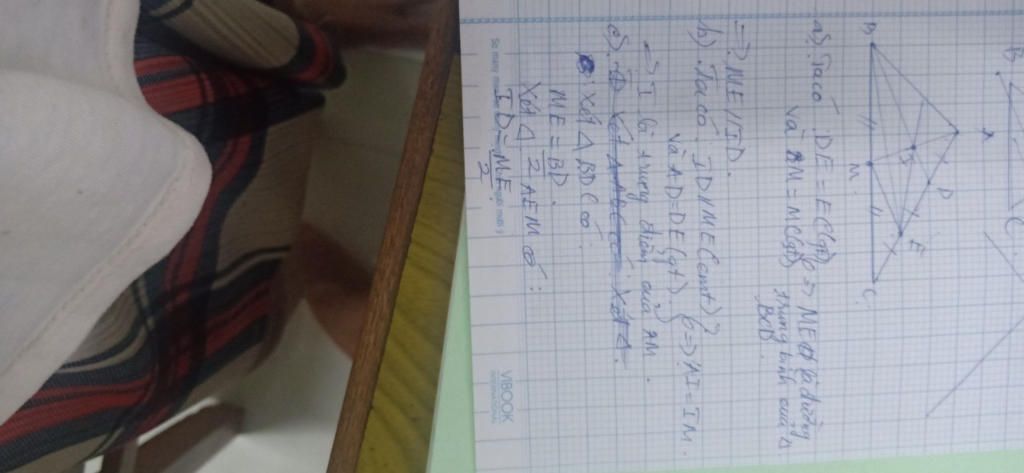 B
A
C
B
M
D
E
C
I
a) Ta có DE = EC (gt)
và BM = MC (gt)
=> ME là đường
trung bình của Δ
BCD.
=> ME // ID.
b) Ta có ID // ME (cmt)
và AD = DE (gt)
=> AI = IM.
=> I là trung điểm của AM.
c)
Xét Δ BDC có:
ME = BD/2
Xét Δ AEM có:
ID = ME/2.
VIBOOK